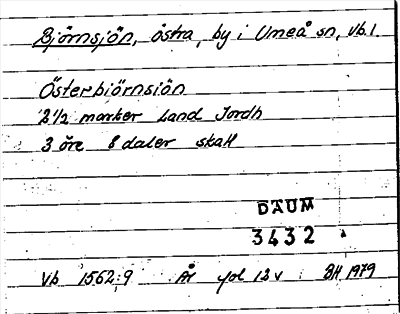 Björnsjön, östra, by i Umeå sn, Vb l.
Österbiörnsiön
2 1/2 marker Land Jordh
3 öre 8 daler skatt
DAUM
3432
Vb 1562:9 År fol 12 v BH 1979